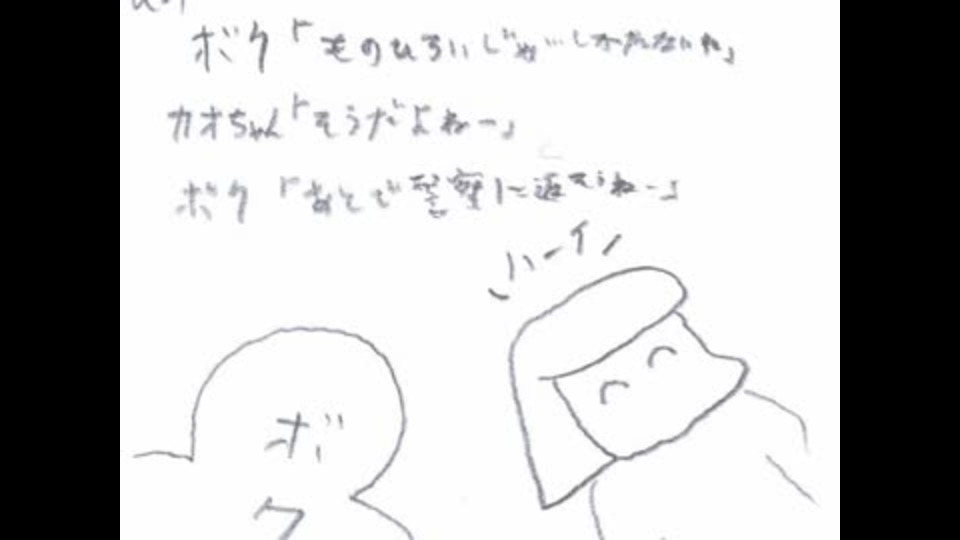 ボク「ものひろいじゃ…しかたないね」
カオちゃん「そうだよねー」
ボク「あとで警察に返そうねー」
ハーイ
ボ
ク